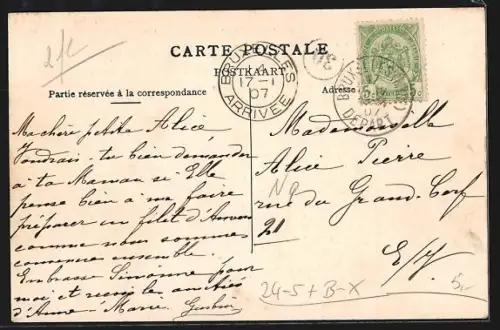 2/c
CARTE POSTALE
POSTKAART
Partie réservée à la correspondance
Adresse
BRUXELLES
14
17-I
07
ARRIVEE
5c
DEPART
07
Ma chère petite Alice
Voudrais-tu bien demander
à ta Maman si Elle
pense bien à me faire
préparer un filet d'Anvers
comme nous sommes
convenues ensemble.
Embrasse Simonne pour
moi et reçois les amitiés
d'Anne-Marie
Mademoiselle
Alice Pierre
rue du Grand-Cerf
No
21
E/V
24-5+B-X
5,-